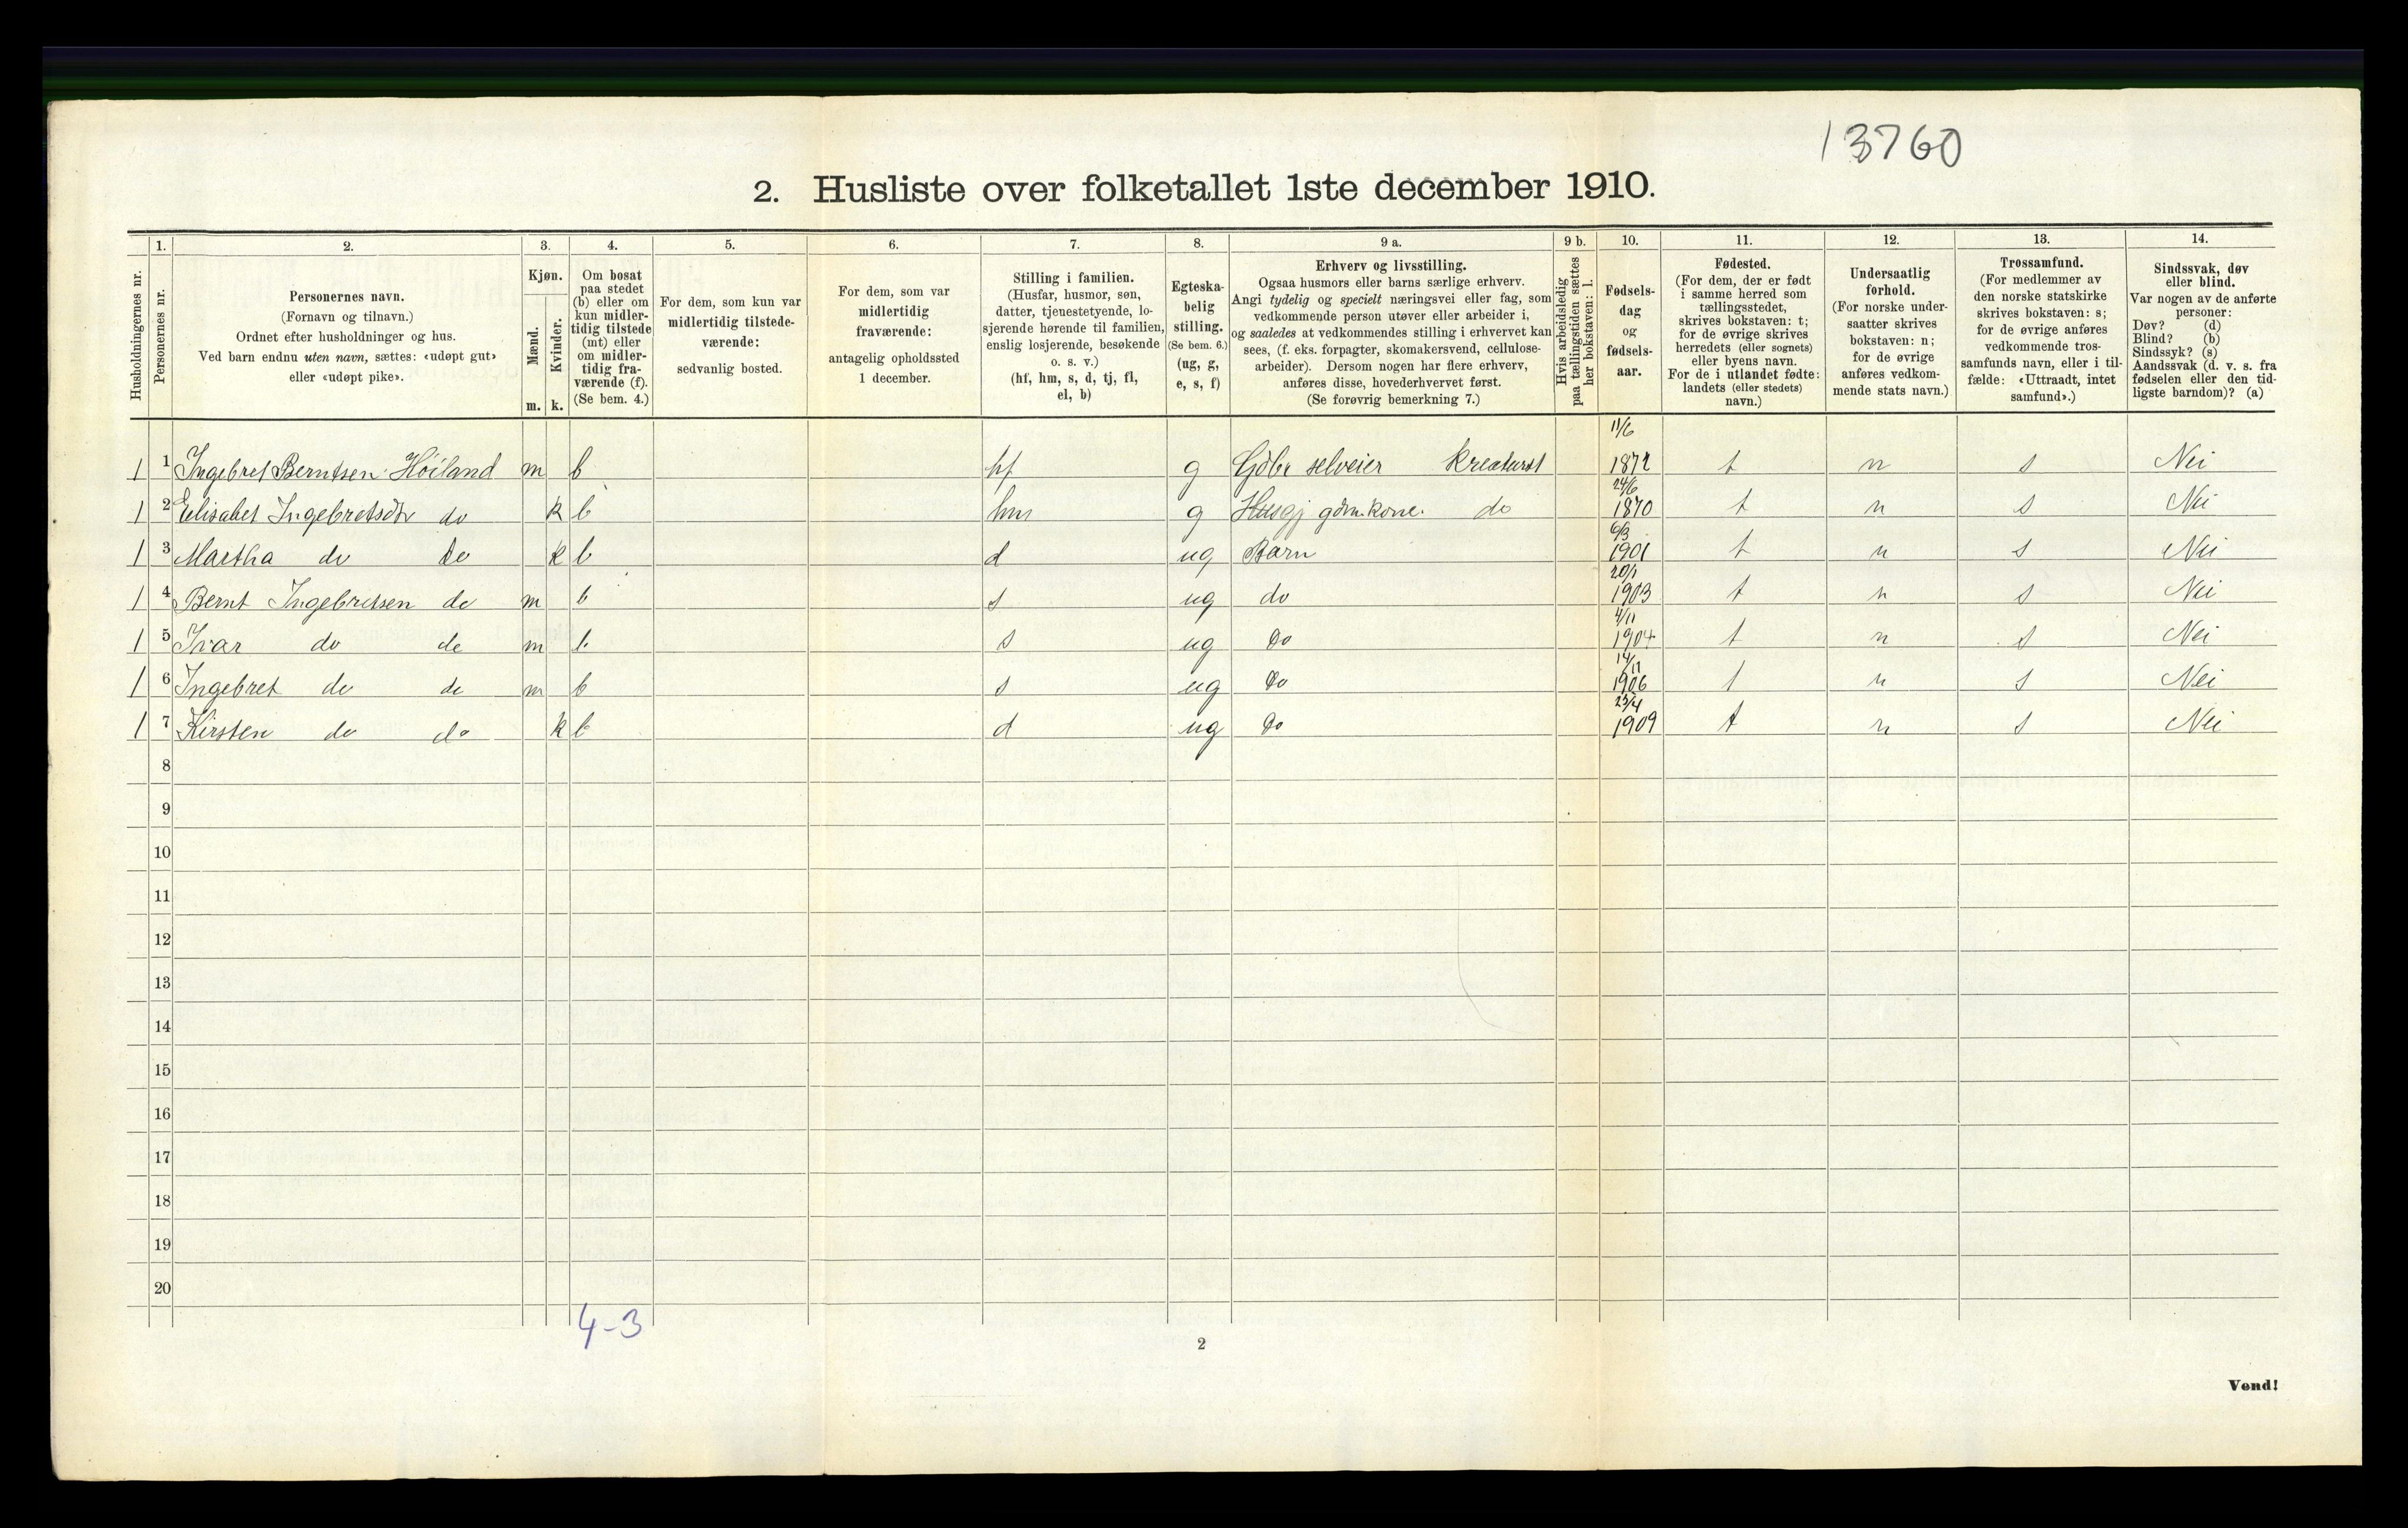 13760
2. Husliste over folketallet 1ste december 1910.
Husholdningernes nr.
1.
Personernes nr.
2.
Personernes navn.
(Fornavn og tilnavn.)
Ordnet efter husholdninger og hus.
Ved barn endnu uten navn, sættes: «udøpt gut»
eller «udøpt pike».
3.
Kjøn.
Mænd.
Kvinder.
m. k.
4.
Om bosat
paa stedet
(b) eller om
kun midler-
tidig tilstede
(mt) eller
om midler-
tidig fra-
værende (f).
(Se bem. 4.)
5.
For dem, som kun var
midlertidig tilstede-
værende:
sedvanlig bosted.
6.
For dem, som var
midlertidig
fraværende:
antagelig opholdssted
1 december.
7.
Stilling i familien.
(Husfar, husmor, søn,
datter, tjenestetyende, lo-
sjerende hørende til familien,
enslig losjerende, besøkende
o. s. v.)
(hf, hm, s, d, tj, fl,
el, b)
8.
Egteska-
belig
stilling.
(Se bem. 6.)
(ug, g,
e, s, f)
9 a.
Erhverv og livsstilling.
Ogsaa husmors eller barns særlige erhverv.
Angi tydelig og specielt næringsvei eller fag, som
vedkommende person utøver eller arbeider i,
og saaledes at vedkommendes stilling i erhvervet kan
sees, (f. eks. forpagter, skomakersvend, cellulose-
arbeider). Dersom nogen har flere erhverv,
anføres disse, hovederhvervet først.
(Se forøvrig bemerkning 7.)
9 b.
Hvis arbeidsledig
paa tællingstiden sættes
her bokstaven: l.
10.
Fødsels-
dag
og
fødsels-
aar.
11.
Fødested.
(For dem, der er født
i samme herred som
tællingsstedet,
skrives bokstaven: t;
for de øvrige skrives
herredets (eller sognets)
eller byens navn.
For de i utlandet fødte:
landets (eller stedets)
navn.)
12.
Undersaatlig
forhold.
(For norske under-
saatter skrives
bokstaven: n;
for de øvrige
anføres vedkom-
mende stats navn.)
13.
Trossamfund.
(For medlemmer av
den norske statskirke
skrives bokstaven: s;
for de øvrige anføres
vedkommende tros-
samfunds navn, eller i til-
fælde: «Uttraadt, intet
samfund».)
14.
Sindssvak, døv
eller blind.
Var nogen av de anførte
personer:
Døv? (d)
Blind? (b)
Sindssyk? (s)
Aandssvak (d. v. s. fra
fødselen eller den tid-
ligste barndom)? (a)
1 1 Ingebret Berntsen Høiland m b hf g Gdbr selveier Kreaturst 11/6 1872 t n s Nei
1 2 Elisabet Ingebretsdtr do k b hm g Husgj gdm.kone. do 24/6 1870 t n s Nei
1 3 Martha do do k b d ug Barn 6/3 1901 t n s Nei
1 4 Bernt Ingebretsen do m b s ug do 20/1 1903 t n s Nei
1 5 Ivar do do m b s ug Do 4/11 1904 t n s Nei
1 6 Ingebret do do m b s ug Do 14/11 1906 t n s Nei
1 7 Kirsten do do k b d ug Do 23/4 1909 t n s Nei
8
9
10
11
12
13
14
15
16
17
18
19
20
4-3
2
Vend!